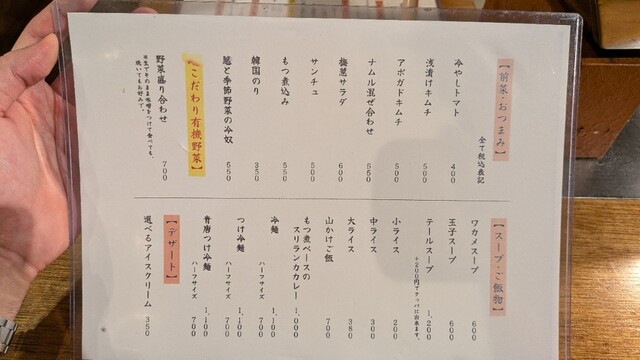 【前菜・おつまみ】
全て税込表記
冷やしトマト 400
浅漬けキムチ 500
アボガドキムチ 500
ナムル混ぜ合わせ 550
梅葱サラダ 600
サンチュ 500
もつ煮込み 550
韓国のり 350
葱と季節野菜の冷奴 550
【こだわり有機野菜】
野菜盛り合わせ 700
※生でそのまま味噌をつけて食べても、
焼いてもお好みで。
【スープ・ご飯物】
ワカメスープ 600
玉子スープ 600
テールスープ 1,200
+200円でクッパに出来ます。
小ライス 200
中ライス 300
大ライス 380
山かけご飯 700
もつ煮ベースの
スリランカカレー 1,000
冷麺 1,100
ハーフサイズ 700
つけ冷麺 1,100
ハーフサイズ 700
青唐つけ冷麺 1,100
ハーフサイズ 700
【デザート】
選べるアイスクリーム 350